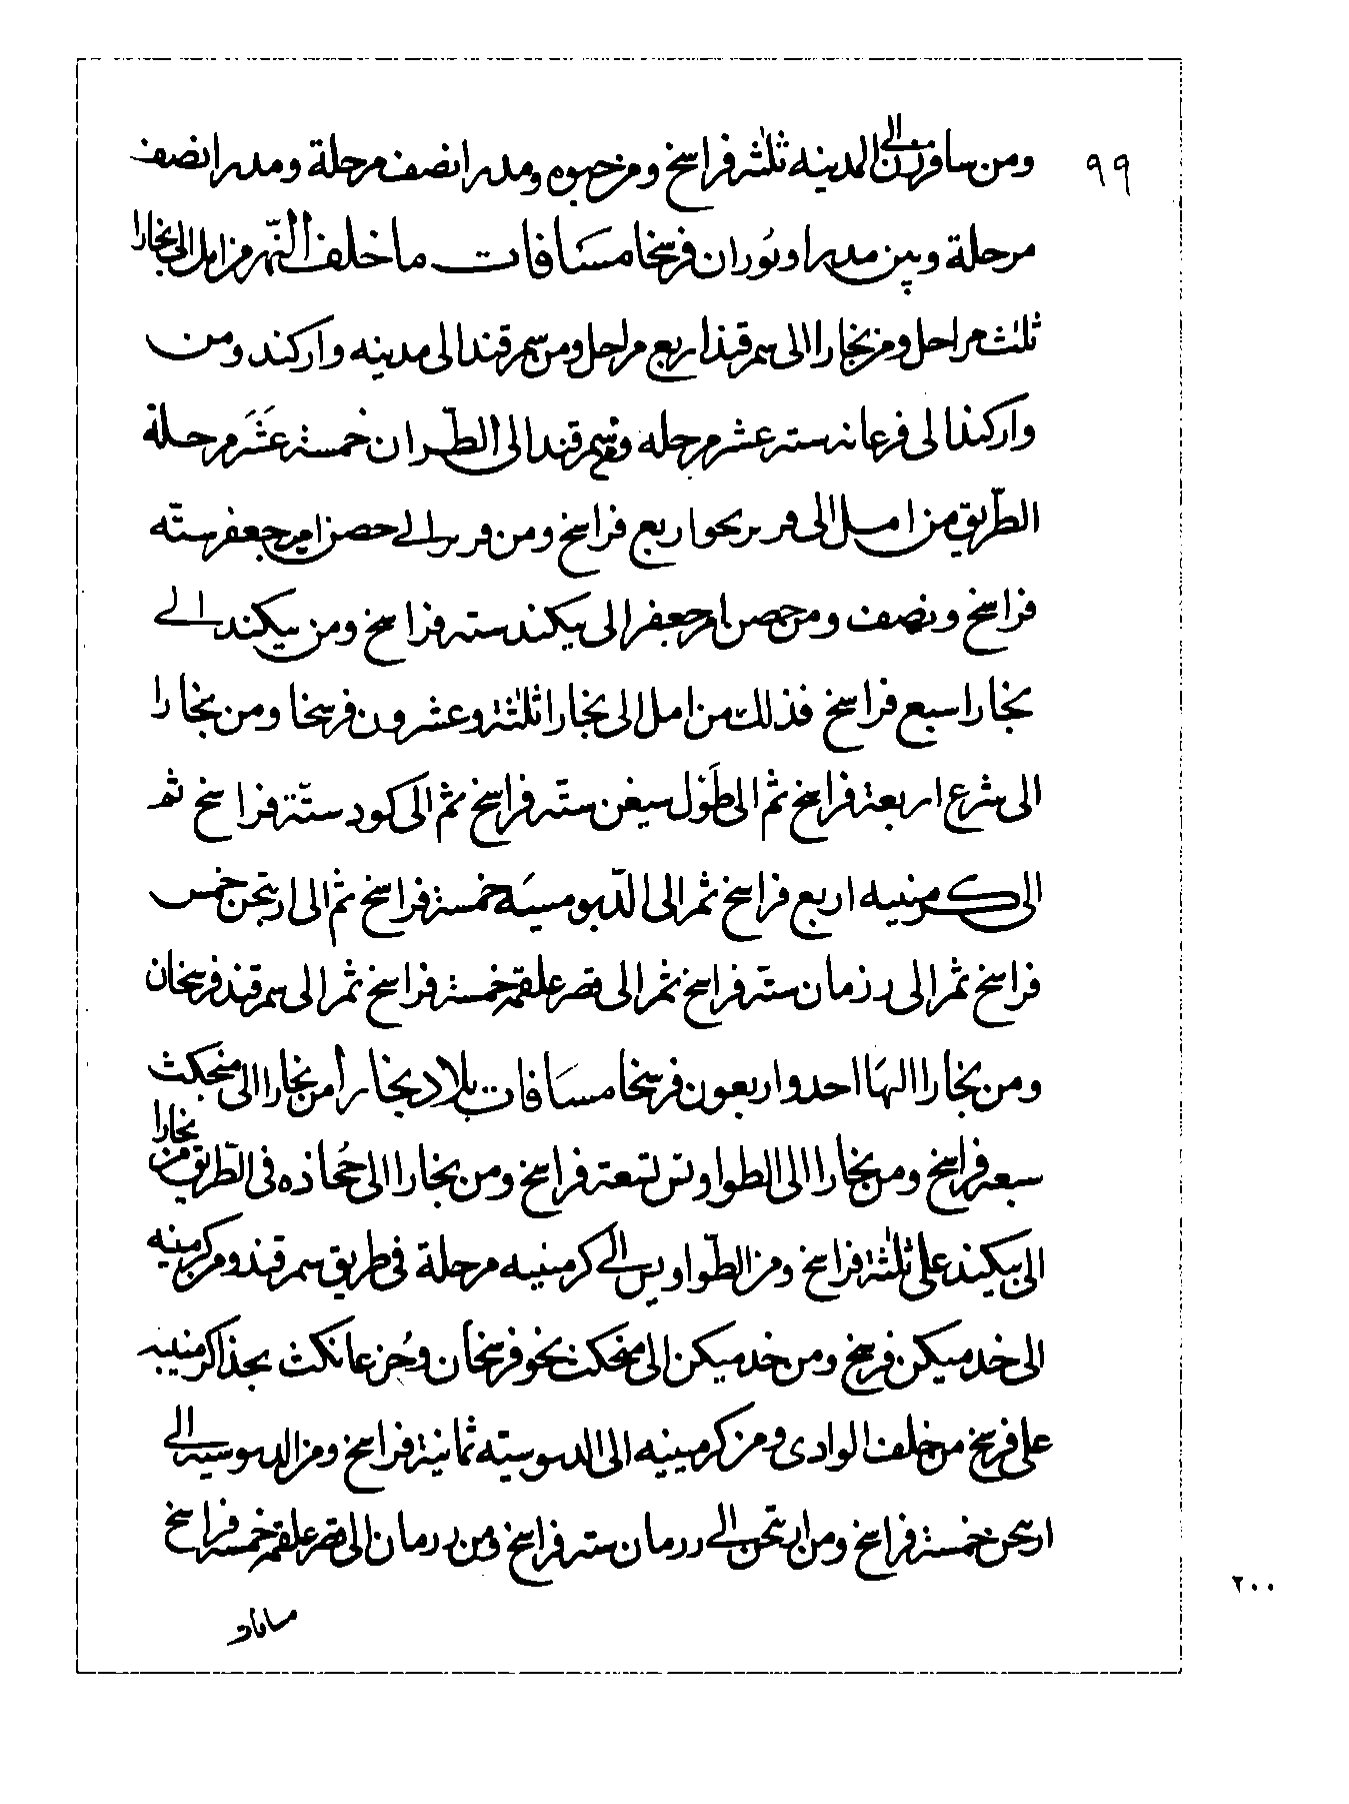 ٩٩
ومن سافردز الى المدينه ثلثه فراسخ ومن خيوه ومدرا نصف مرحلة ومدرا نصف
مرحلة وبين مدرا ونوران فرسخا مسافات ما خلف النهر من امل الى بخارا
ثلث مراحل ومن بخارا الى سمرقند اربع مراحل ومن سمرقند الى مدينه واركند ومن
واركند الى فرغانه سته عشر مرحله ومن سمرقند الى الطران خمسة عشر مرحلة
الطريق من امل الى فربر نحوا ربع فراسخ ومن فربر الى حصن ام جعفر ستّه
فراسخ ونصف ومن حصن ام جعفر الى بيكند سته فراسخ ومن بيكند الى
بخارا سبع فراسخ فذلك من امل الى بخارا ثلثة وعشرون فرسخا ومن بخارا
الى شرع اربعة فراسخ ثم الى طول سيغن ستّه فراسخ ثم الى كود ستّة فراسخ ثم
الى كرمنيه اربع فراسخ ثم الى الدّبوسيَه خمسة فراسخ ثم الى اربنجن خمس
فراسخ ثم الى رزمان ستّه فراسخ ثم الى قصر علقمه خمسة فراسخ ثم الى سمرقند فرسخان
ومن بخارا اليها احد واربعون فرسخا مسافات بلاد بخارا من بخارا الى منجكث
سبعه فراسخ ومن بخارا الى الطواوس لتسعة فراسخ ومن بخارا الى حُجاذه فى الطريق من بخارا
الى بيكند على ثلثة فراسخ ومن الطّواويس الى كرمنيه مرحلة فى طريق سمرقند ومن كرمنيه
الى خدميكن فرسخ ومن خدميكن الى منجكث نحو فرسخان وخرغانكث بحذا كرمنيه
على فرسخ من خلف الوادى ومن كرمينيه الى الدبوسيّه ثمانية فراسخ ومن الدبوسيه الى
اربنجن خمسة فراسخ ومن اربنجن الى زرمان سته فراسخ ومن زرمان الى قصر علقمه خمسه فراسخ
٢٠٠